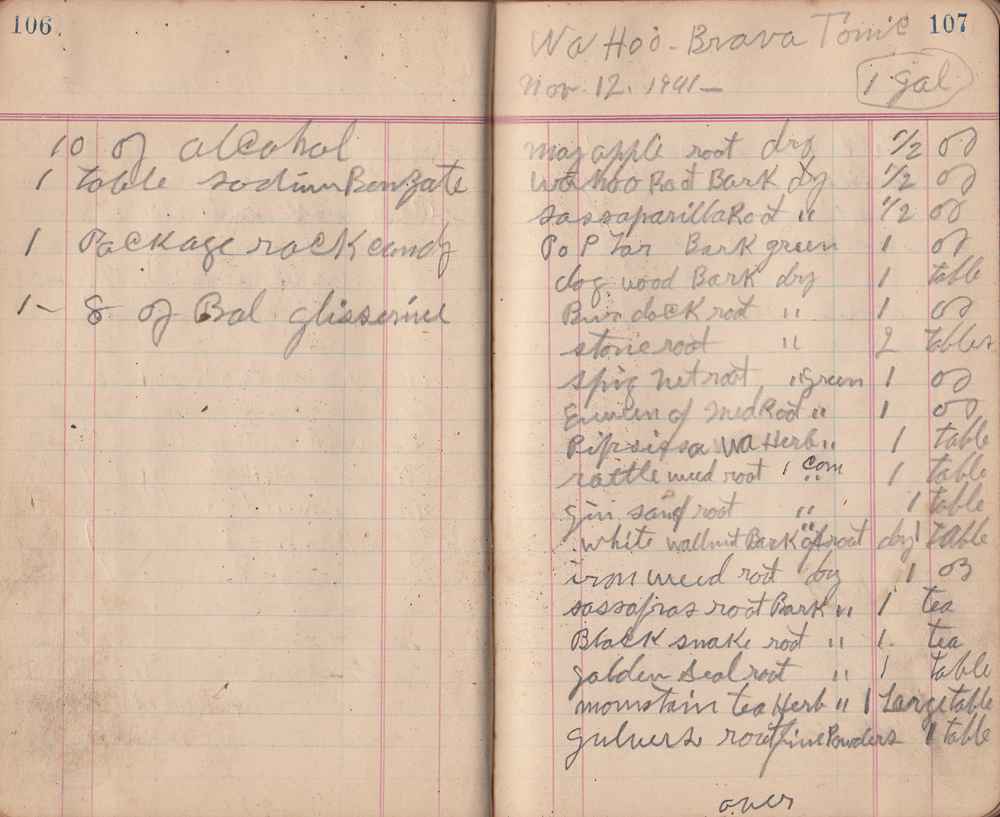 106
10 of alcohol
1 table sodium Benzate
1 Package rock candy
1- 8 of Bal glisserine
107
Wa Hoo-Brava Tonic
Nov. 12. 1941-
1 gal
may apple root dry 1/2 oz
wa hoo Root Bark dry 1/2 oz
sassaparilla Root " 1/2 oz
PoP lar Bark green 1 oz
dog wood Bark dry 1 table
Burdock root " 1 oz
stone root " 2 tables
spig net root, " green 1 oz
Root " 1 oz
Pipsissa wa Herb " 1 table
rattle weed root 1 com " 1 table
gin sang root " 1 table
white wallnut Bark of root dry 1 table
iron weed root dry 1 oz
sassafras root Bark " 1 tea
Black snake root " 1. tea
golden Seal root " 1 table
mountain tea Herb " 1 Large table
gulvers root fine Powders 1 table
over